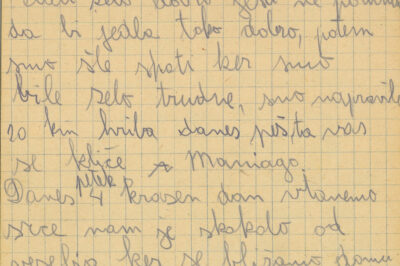 zelo dobro
da bi jedla tako dobro, potem
smo šle spati ker smo
bile zelo trudne, smo napravile
20 km hriba danes pešta vas
se kliče Maniago.
Danes petek 4 krasen dan vstanemo
srce nam je skakalo od
veselja ker se bližamo domu